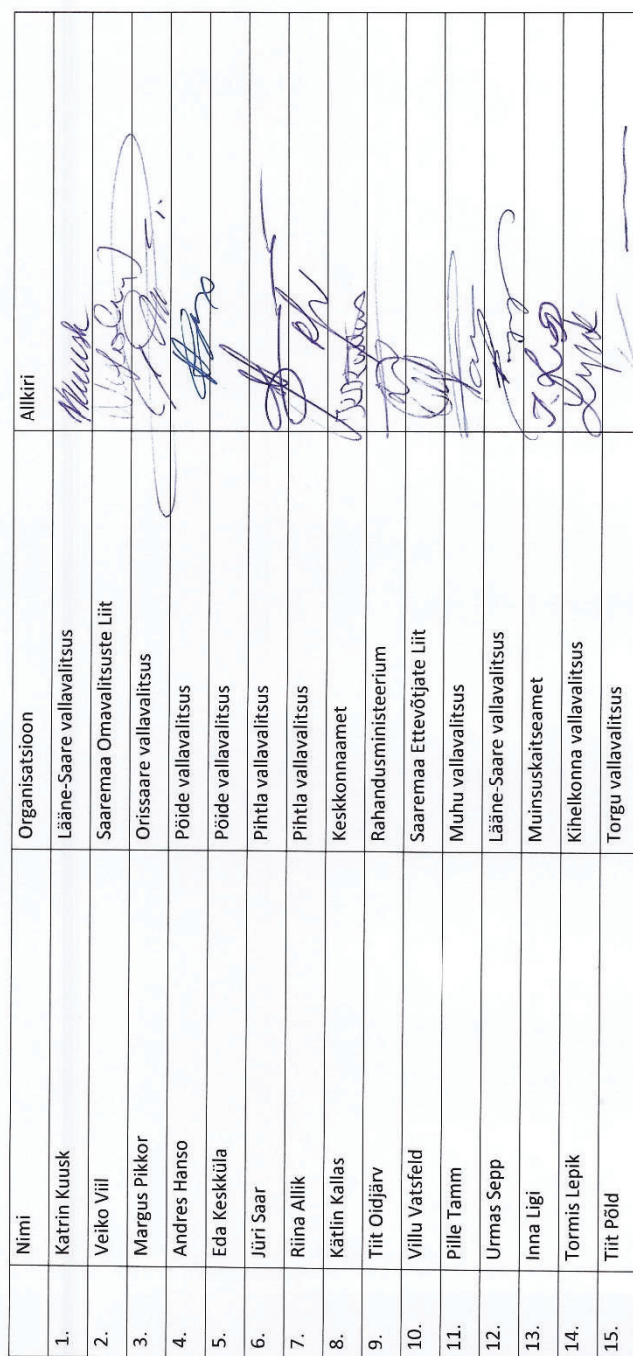 Nimi Organisatsioon Allkiri
1. Katrin Kuusk Lääne-Saare vallavalitsus Kuusk
2. Veiko Viil Saaremaa Omavalitsuste Liit
3. Margus Pikkor Orissaare vallavalitsus
4. Andres Hanso Pöide vallavalitsus
5. Eda Keskküla Pöide vallavalitsus
6. Jüri Saar Pihtla vallavalitsus
7. Riina Allik Pihtla vallavalitsus
8. Kätlin Kallas Keskkonnaamet
9. Tiit Oidjärv Rahandusministeerium
10. Villu Vatsfeld Saaremaa Ettevõtjate Liit
11. Pille Tamm Muhu vallavalitsus
12. Urmas Sepp Lääne-Saare vallavalitsus
13. Inna Ligi Muinsuskaitseamet
14. Tormis Lepik Kihelkonna vallavalitsus
15. Tiit Põld Torgu vallavalitsus